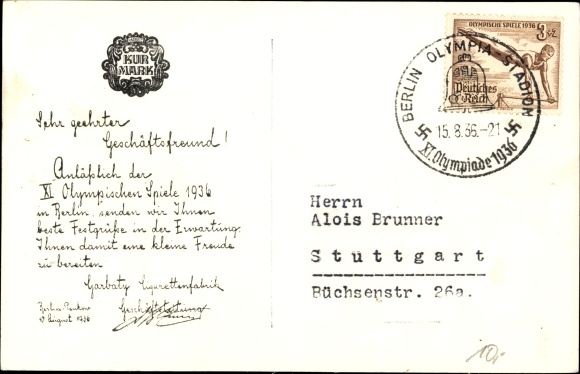 KUR
MARK
Sehr geehrter
Geschäftsfreund!
Anläßlich der
XI Olympischen Spiele 1936
in Berlin, senden wir Ihnen
beste Festgrüße in der Erwartung,
Ihnen damit eine kleine Freude
zu bereiten
Garbaty Cigarettenfabrik
Berlin-Pankow
August 1936
Geschäftsleitung
OLYMPISCHE SPIELE 1936
3
Deutsches
Reich
BERLIN OLYMPIA-STADION
15.8.36.-21
XI. Olympiade 1936
Herrn
Alois Brunner
Stuttgart
Büchsenstr. 26a.
10,-